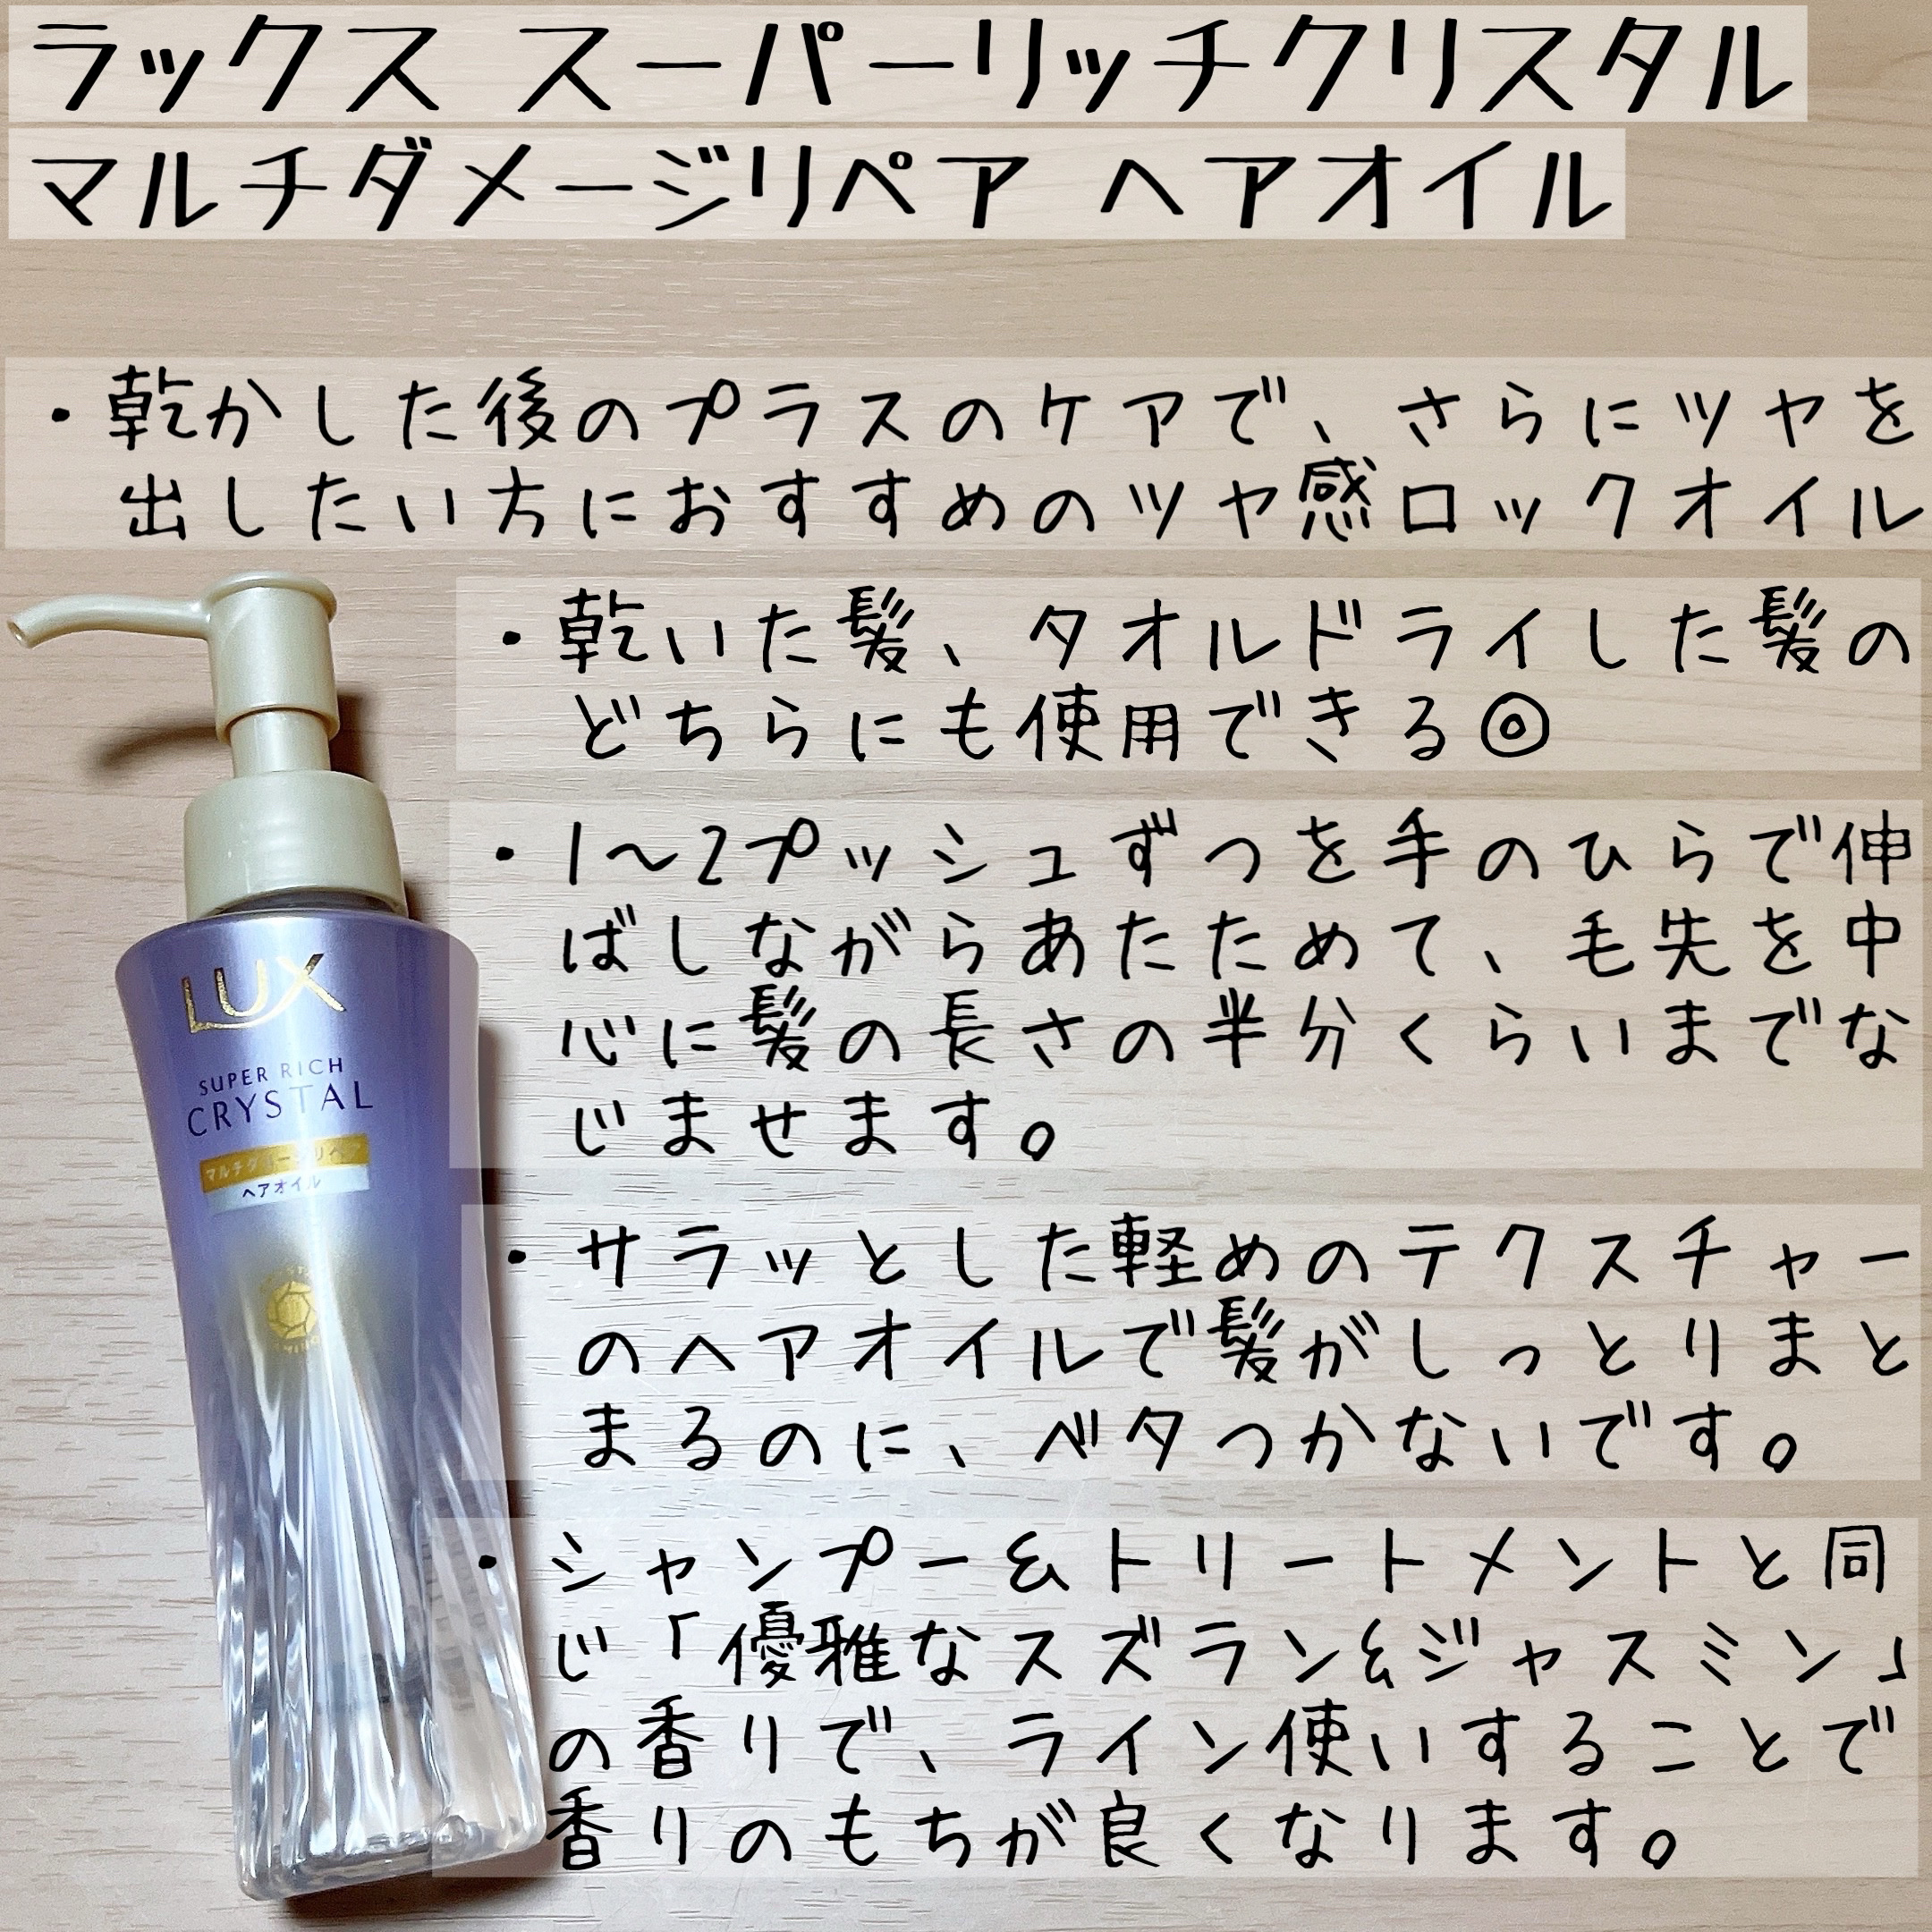 ラックス スーパーリッチクリスタル
マルチダメージリペア ヘアオイル
・乾かした後のプラスのケアで、さらにツヤを
出したい方におすすめのツヤ感ロックオイル
・乾いた髪、タオルドライした髪の
どちらにも使用できる◎
・1〜2プッシュずつを手のひらで伸
ばしながらあたためて、毛先を中
心に髪の長さの半分くらいまでな
じませます。
・サラッとした軽めのテクスチャー
のヘアオイルで髪がしっとりまと
まるのに、ベタつかないです。
・シャンプー&トリートメントと同
じ「優雅なスズラン&ジャスミン」
の香りで、ライン使いすることで
香りのもちが良くなります。
LUX
SUPER RICH
CRYSTAL
マルチダメージリペア
ヘアオイル